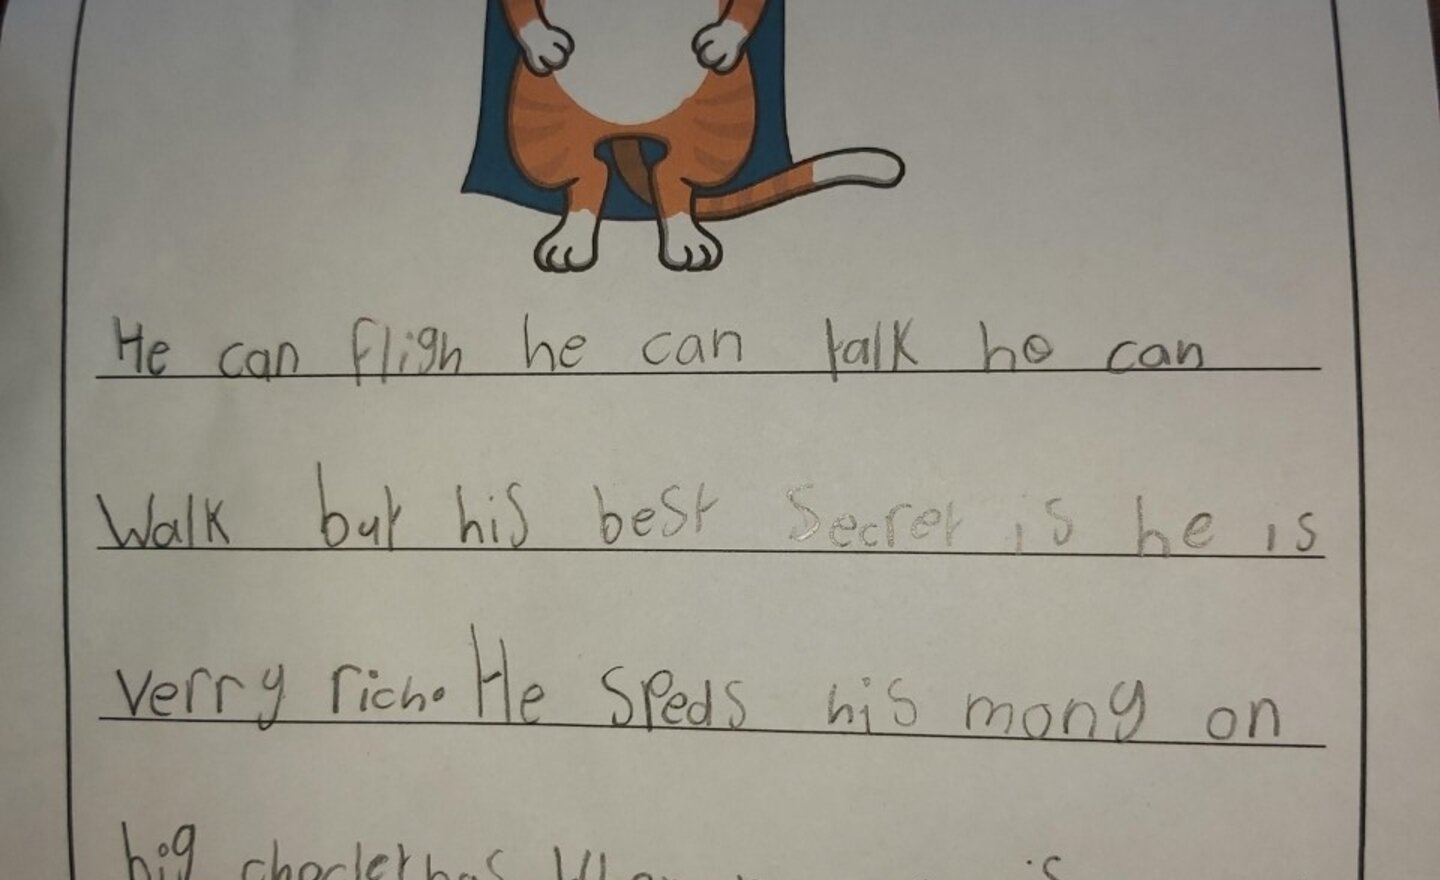 He can fligh he can talk he can
Walk but his best Secret is he is
verry rich. He Speds his mony on
big